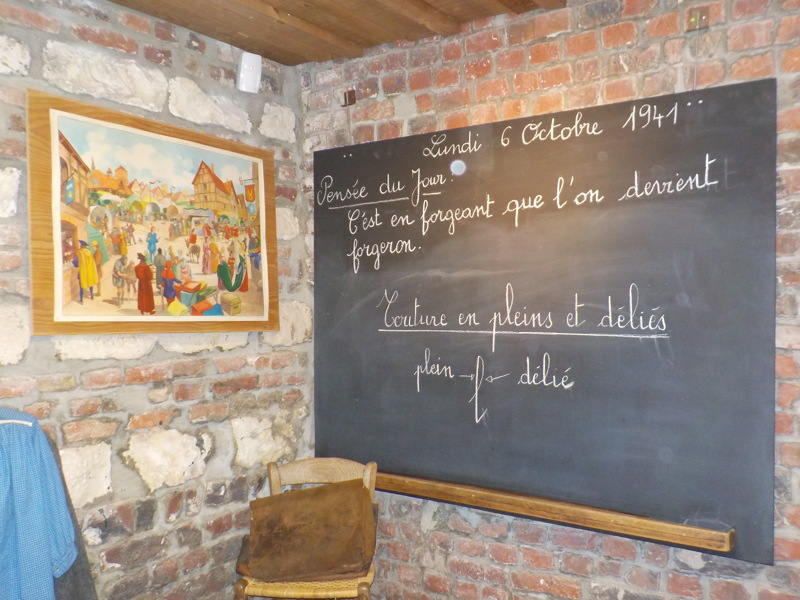 Lundi 6 Octobre 1941
Pensée du Jour :
C'est en forgeant que l'on devient
forgeron.
Ecriture en pleins et déliés
plein → f ← délié